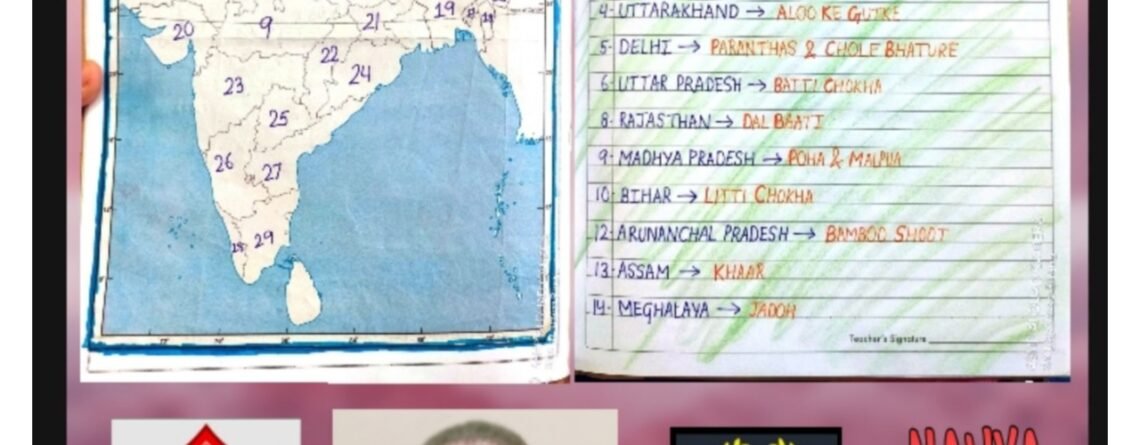 20
9
21
19
22
23
24
25
26
27
29
18
4- UTTARAKHAND → ALOO KE GUTKE
5- DELHI → PARANTHAS & CHOLE BHATURE
6- UTTAR PRADESH → BATTI CHOKHA
8- RAJASTHAN → DAL BAATI
9- MADHYA PRADESH → POHA & MALPUA
10- BIHAR → LITTI CHOKHA
12- ARUNANCHAL PRADESH → BAMBOO SHOOT
13- ASSAM → KHAAR
14- MEGHALAYA → JADOH
Teacher's Signature